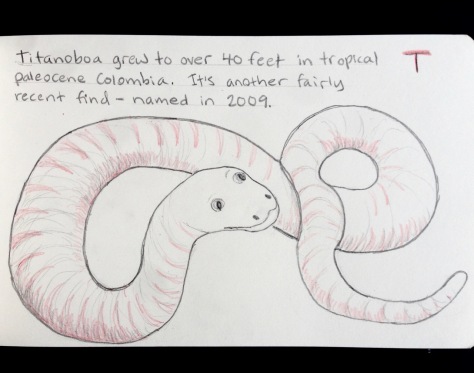 Titanoboa grew to over 40 feet in tropical
T
paleocene Colombia. It's another fairly
recent find - named in 2009.